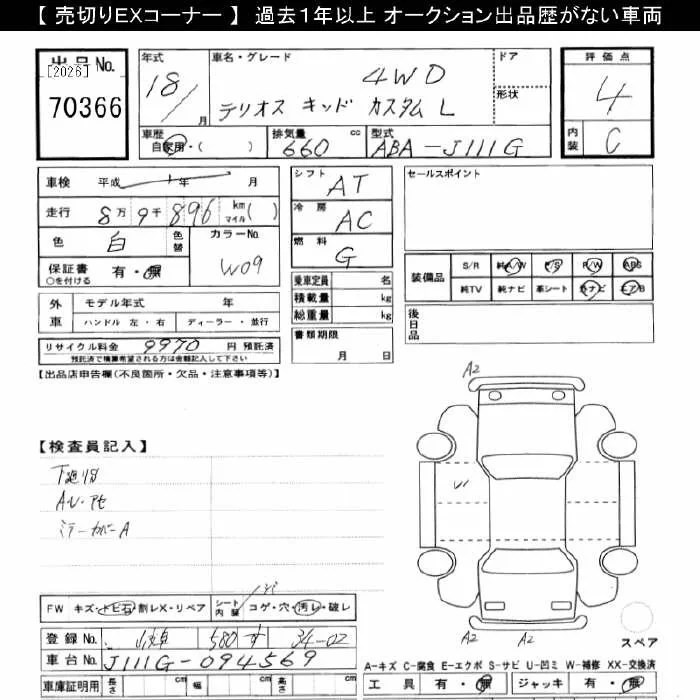 【 売切りEXコーナー 】 過去1年以上 オークション出品歴がない車両
出品No.
[2026]
70366
年式
18/
月
車名・グレード
4WD
テリオス キッド カスタム L
ドア
形状
評価点
4
内装
C
車歴
自家用・( )
排気量
660
cc
型式
ABA-J111G
車検 平成 年 月
走行 8万9千896 km マイル( )
色 白 色替
カラーNo. W09
保証書 有・無
○を付ける
シフト AT
冷房 AC
燃料 G
セールスポイント
装備品 S/R 純A/W P/S P/W ABS
純TV 純ナビ 革シート カナビ エアB
乗車定員 名
積載量 kg
総重量 kg
外車 モデル年式 年
ハンドル 左・右 ディーラー・並行
リサイクル料金 9970 円 預託済
預託済で精算希望される方は金額記入して下さい
書類期限
月 日
後日品
【出品店申告欄(不良箇所・欠品・注意事項等)】
A2
【検査員記入】
下廻りS
ミラーカバーA
FW キズ・トビ石・割レX・リペア シート内装 コゲ・穴・汚レ・破レ
A2
スペア
登録No. 580 す 34-02
車台No. J111G-094569
A-キズ C-腐食 E-エクボ S-サビ U-凹ミ W-補修 XX-交換済
車庫証明用 長さ cm 幅 cm 高さ cm
工具 有・無 ジャッキ 有・無